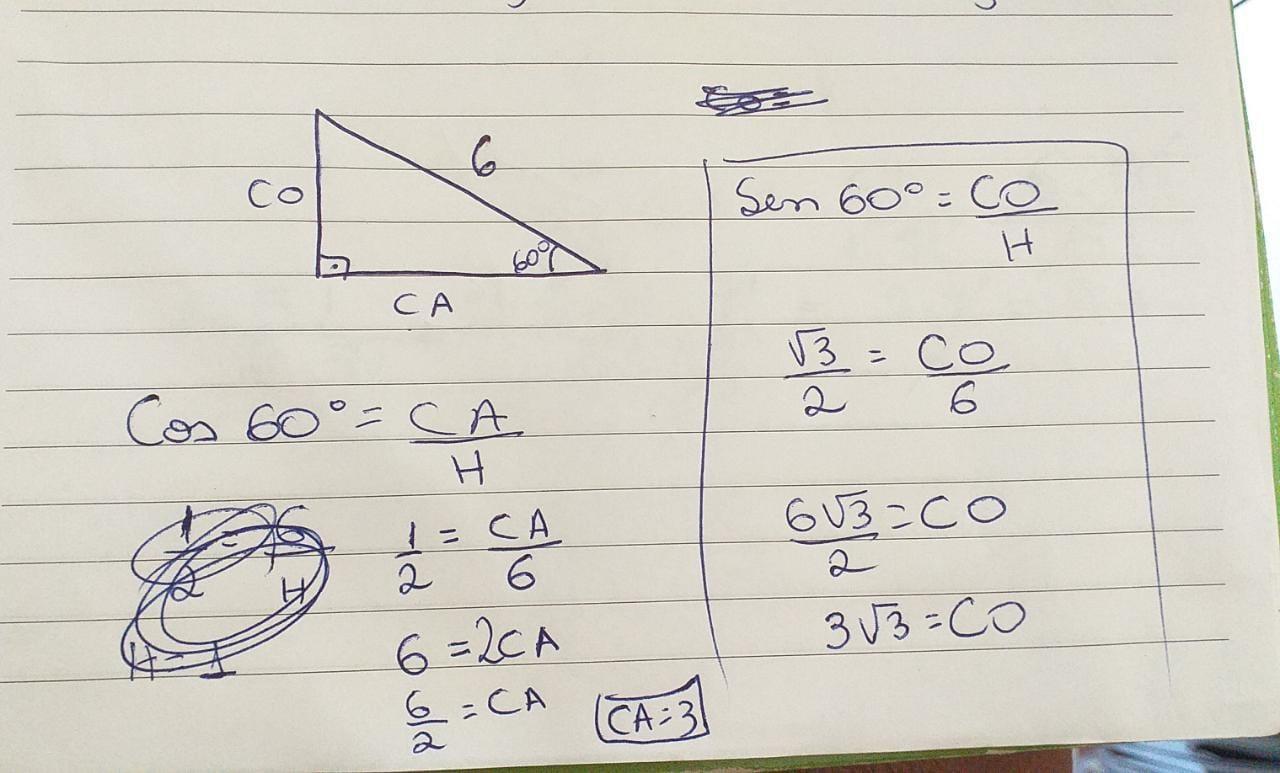 6
CO
60°
CA
Cos 60° = CA/H
1/2 = CA/6
6 = 2CA
6/2 = CA
CA = 3
Sen 60° = CO/H
√3/2 = CO/6
6√3/2 = CO
3√3 = CO